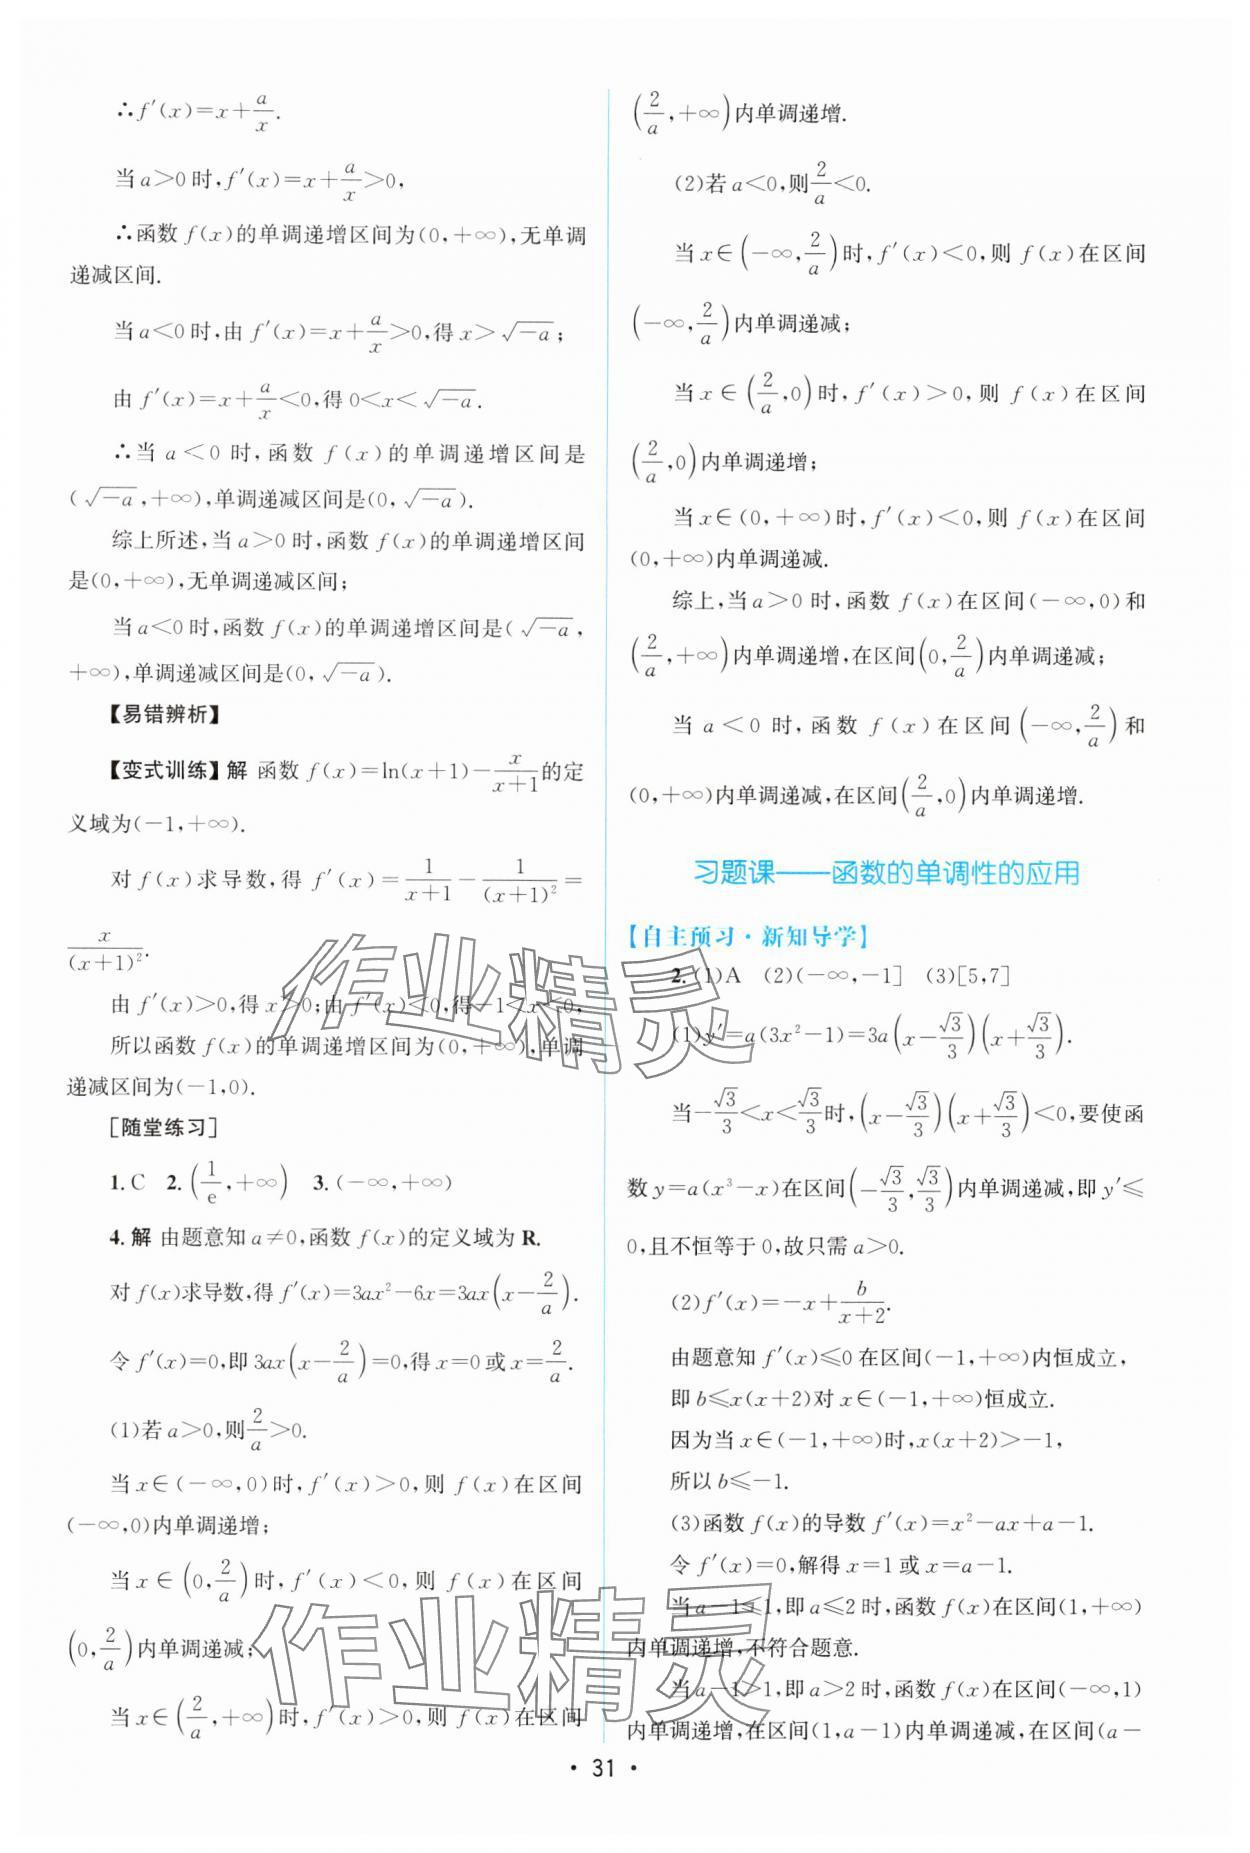 ∴f′(x)=x+a/x.
当a>0时,f′(x)=x+a/x>0,
∴函数f(x)的单调递增区间为(0,+∞),无单调
递减区间.
当a<0时,由f′(x)=x+a/x>0,得x>√-a;
由f′(x)=x+a/x<0,得0<x<√-a.
∴当a<0时,函数f(x)的单调递增区间是
(√-a,+∞),单调递减区间是(0,√-a).
综上所述,当a>0时,函数f(x)的单调递增区间
是(0,+∞),无单调递减区间;
当a<0时,函数f(x)的单调递增区间是(√-a,
+∞),单调递减区间是(0,√-a).
【易错辨析】
【变式训练】解 函数f(x)=ln(x+1)-x/(x+1)的定
义域为(-1,+∞).
对f(x)求导数,得f′(x)=1/(x+1)-1/(x+1)²=
x/(x+1)².
由f′(x)>0,得x>0;由f′(x)<0,得-1<x<0,
所以函数f(x)的单调递增区间为(0,+∞),单调
递减区间为(-1,0).
[随堂练习]
1.C 2.(1/e,+∞) 3.(-∞,+∞)
4.解 由题意知a≠0,函数f(x)的定义域为R.
对f(x)求导数,得f′(x)=3ax²-6x=3ax(x-2/a).
令f′(x)=0,即3ax(x-2/a)=0,得x=0或x=2/a.
(1)若a>0,则2/a>0.
当x∈(-∞,0)时,f′(x)>0,则f(x)在区间
(-∞,0)内单调递增;
当x∈(0,2/a)时,f′(x)<0,则f(x)在区间
(0,2/a)内单调递减;
当x∈(2/a,+∞)时,f′(x)>0,则f(x)在区间
(2/a,+∞)内单调递增.
(2)若a<0,则2/a<0.
当x∈(-∞,2/a)时,f′(x)<0,则f(x)在区间
(-∞,2/a)内单调递减;
当x∈(2/a,0)时,f′(x)>0,则f(x)在区间
(2/a,0)内单调递增;
当x∈(0,+∞)时,f′(x)<0,则f(x)在区间
(0,+∞)内单调递减.
综上,当a>0时,函数f(x)在区间(-∞,0)和
(2/a,+∞)内单调递增,在区间(0,2/a)内单调递减;
当a<0时,函数f(x)在区间(-∞,2/a)和
(0,+∞)内单调递减,在区间(2/a,0)内单调递增.
习题课——函数的单调性的应用
【自主预习·新知导学】
2.(1)A (2)(-∞,-1] (3)[5,7]
(1)y′=a(3x²-1)=3a(x-√3/3)(x+√3/3).
当-√3/3<x<√3/3时,(x-√3/3)(x+√3/3)<0,要使函
数y=a(x³-x)在区间(-√3/3,√3/3)内单调递减,即y′≤
0,且不恒等于0,故只需a>0.
(2)f′(x)=-x+b/(x+2).
由题意知f′(x)≤0在区间(-1,+∞)内恒成立,
即b≤x(x+2)对x∈(-1,+∞)恒成立.
因为当x∈(-1,+∞)时,x(x+2)>-1,
所以b≤-1.
(3)函数f(x)的导数f′(x)=x²-ax+a-1.
令f′(x)=0,解得x=1或x=a-1.
当a-1≤1,即a≤2时,函数f(x)在区间(1,+∞)
内单调递增,不符合题意.
当a-1>1,即a>2时,函数f(x)在区间(-∞,1)
内单调递增,在区间(1,a-1)内单调递减,在区间(a-
·31·
作业精灵
作业精灵